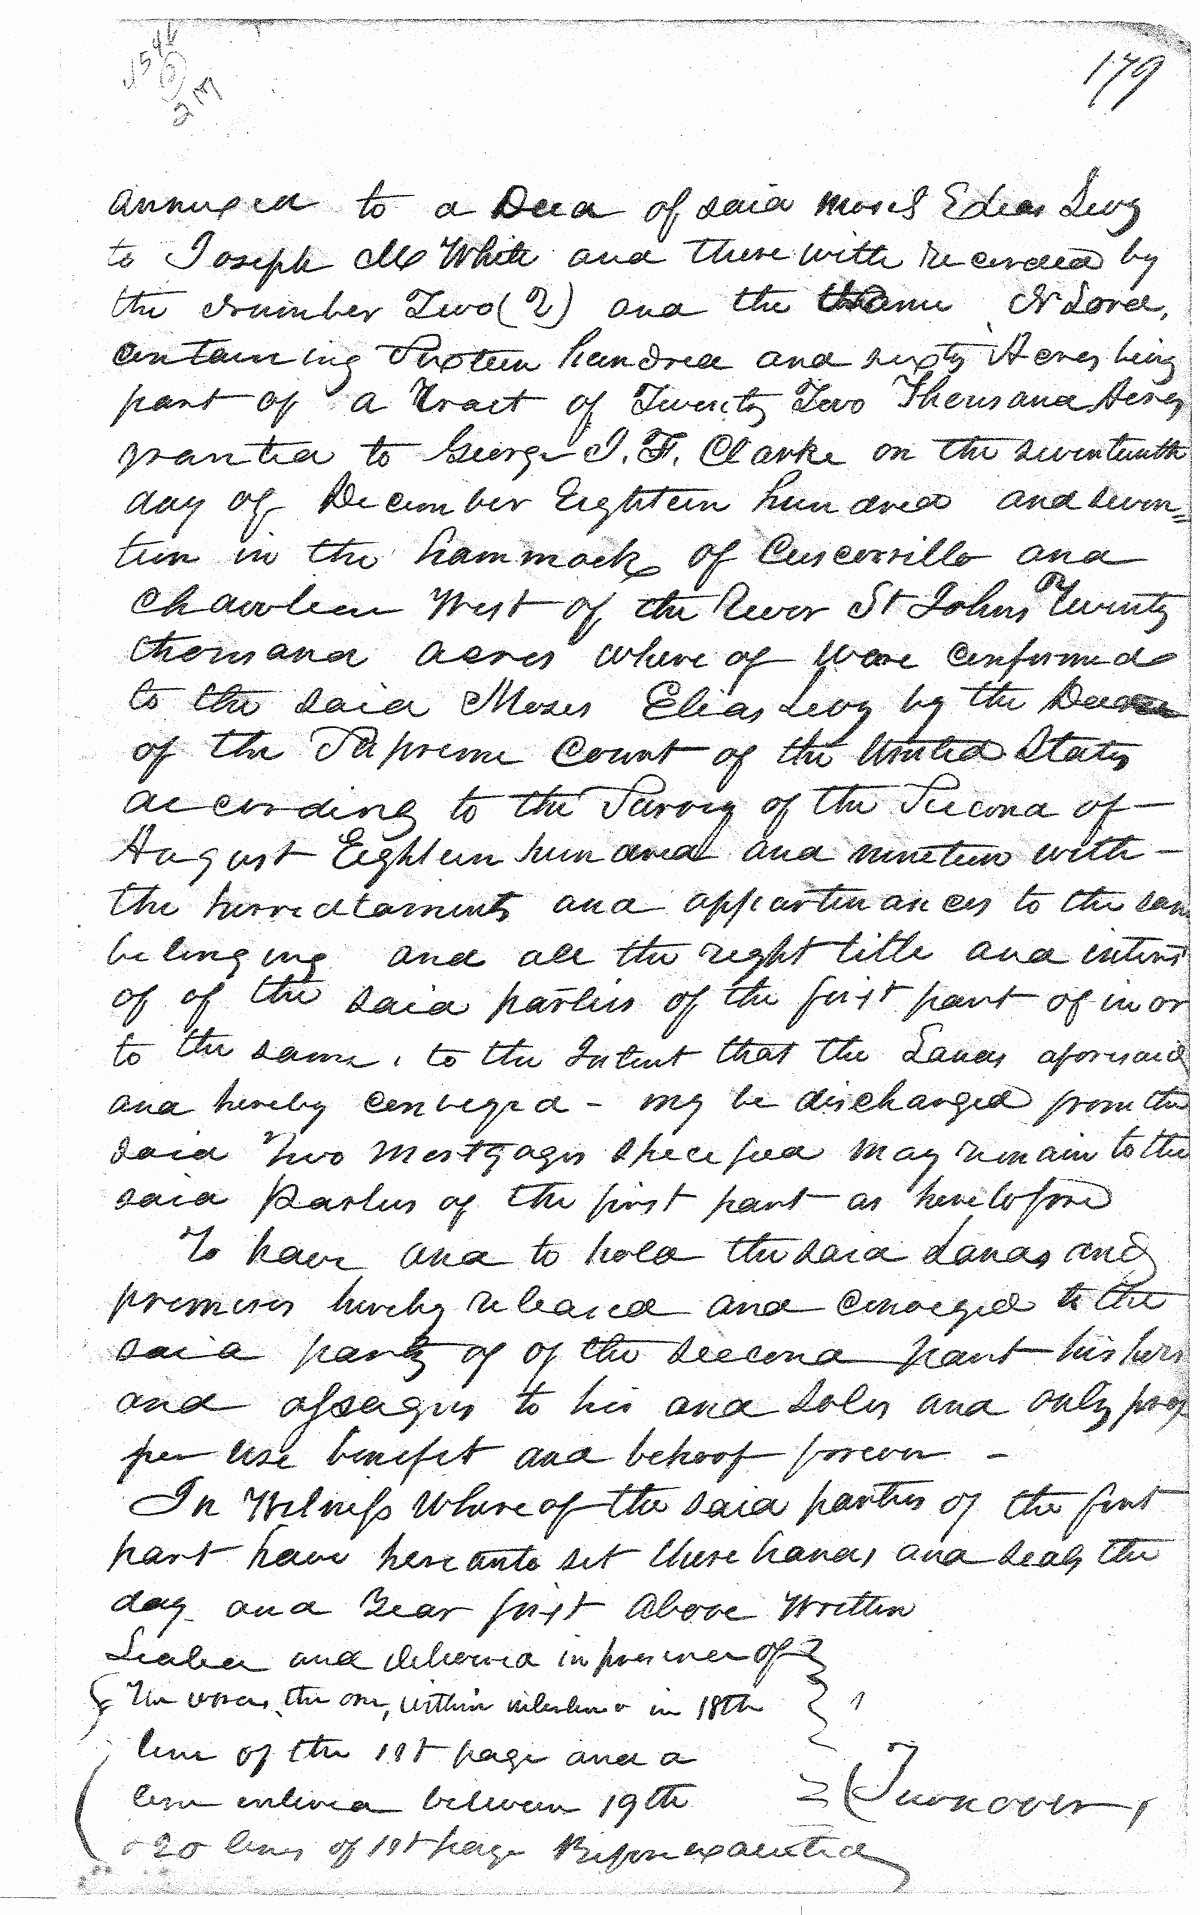 179
annexed to a Deed of said Moses Elias Levy
to Joseph M White and therewith recorded by
the Number Two (2) and the name N Lord,
containing Sixteen hundred and sixty Acres being
part of a Tract of Twenty Two Thousand Acres
granted to George I. F. Clarke on the seventeenth
day of December Eighteen hundred and seven=
teen in the hammock of Cuscowillo and
Chawlew West of the River St Johns Twenty
thousand acres where of were confirmed
to the said Moses Elias Levy by the Decree
of the Supreme Court of the United States
according to the Survey of the Second of
August Eighteen hundred and nineteen with
the herredtaments and appartenances to the same
belonging and all the right title and interest
of of the said parties of the first part of in or
to the same, to the Intent that the Lands aforesaid
and hereby conveyed - may be discharged from the
said Two Mortgages specified may remain to the
said Parties of the first part as heretofore
To have and to hold the said Lands and
premises hereby released and conveyed to the
said party of of the second part his heirs
and assigns to his and soles and only prop
per use benefit and behoof forever -
In Witness Whereof the said parties of the first
part have hereunto set there hands and seals the
day and Year first above Written
Sealed and delivered in presence of
The words, the one, within interlined in 18th
line of the 1st page and a
line enlined between 19th
& 20 lines of 1st page Before executed
(Turnover,